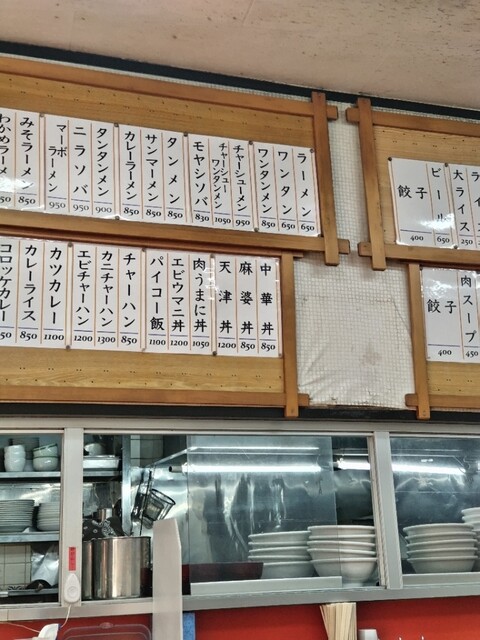 大ライス
250
ビール
650
餃子
400
肉スープ
450
餃子
400
ラーメン
650
ワンタン
650
ワンタンメン
850
チャーシューメン
950
チャーシュー
ワンタンメン
1050
モヤシソバ
830
タンメン
850
サンマーメン
850
カレーラーメン
850
タンタンメン
900
ニラソバ
950
マーボ
ラーメン
950
みそラーメン
850
わかめラーメン
中華丼
850
麻婆丼
850
天津丼
1200
肉うまに丼
1050
エビウマニ丼
1200
パイコー飯
1100
チャーハン
850
カニチャーハン
1300
エビチャーハン
1200
カツカレー
1100
カレーライス
850
コロッケカレー